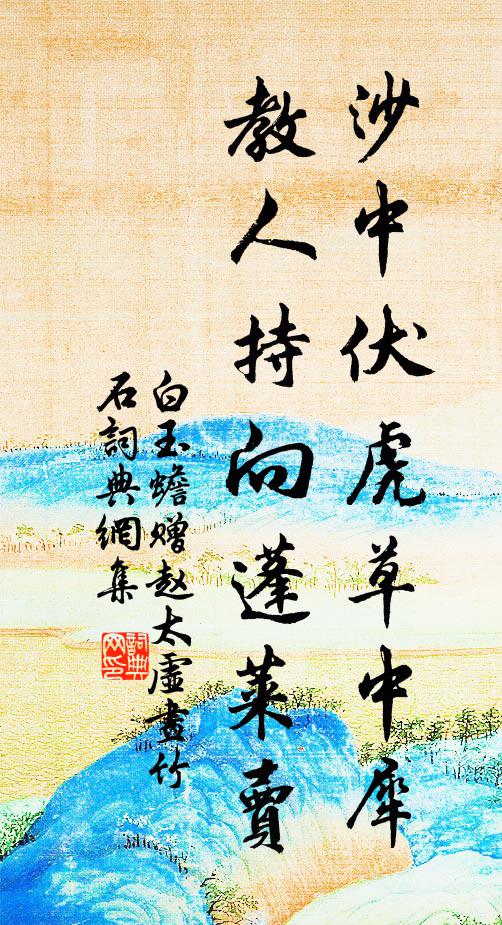 沙中伏虎草中犀
教人持向蓬莱賣
白玉蟾赠赵太虚畫竹
石詞典網集
詞典